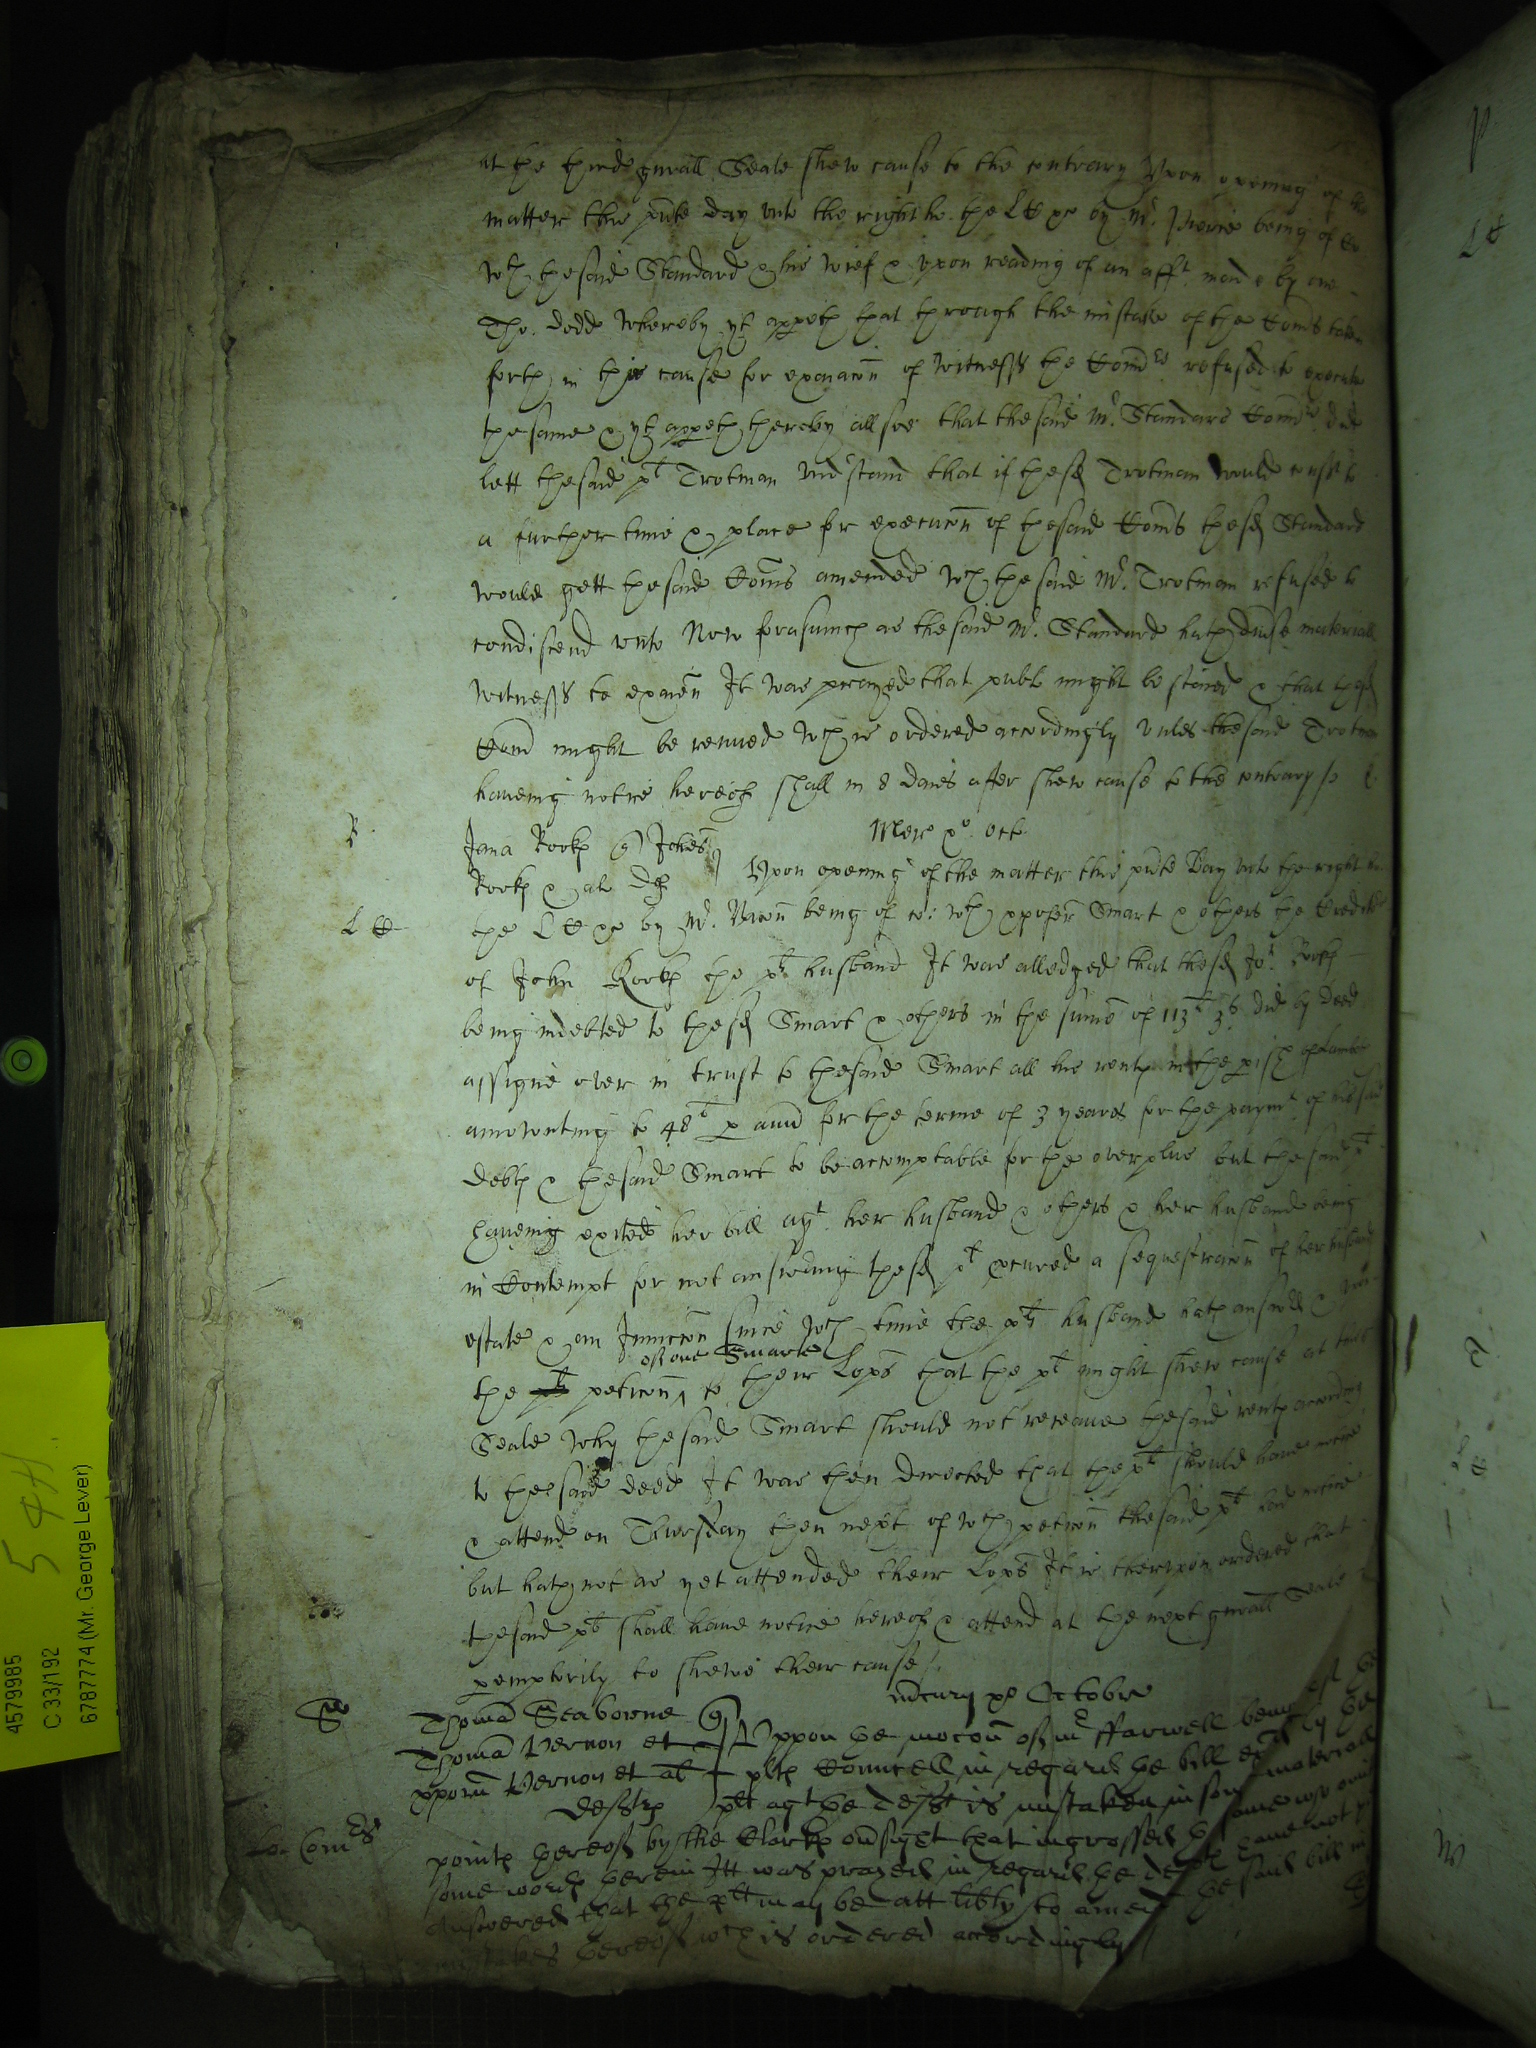 at the third gnrall Seale shew cause to the contrary Upon opening of the
matter this pnte day unto the right ho. the LC &c by Mr. being of Co
wch the said Standard & his wief & upon reading of an afft. made by one
Tho. Dodd whereby yt appeth that through the mistake of the Comis taken
forth in this cause for exaiacon of witnesses the Comrs refused to execute
the same & yt appeth thereby allsoe that the said Mr. Standards Comrs did
lett the said plt Trotman undstand that if the sd Trotman would consent to
a further time & place for execucon of the said Comis the sd Standard
would gett the said Comis amended wch the said Mr. Trotman refused to
condiscend unto Now forasmuch as the said Mr. Standard hath diuse materiall
witnesses to exaien It was prayed that publ might be staied & that the sd
Comis might be renued wch is ordered accordingly unles the said Trotman
haueing notice hereof shall in 8 daies after shew cause to the contrary
R
Jana Rooke Johes
Merc po. Oct
Rooke & al Def
Upon opening of the matter this pnte Day unto the right ho.
LC
the LC &c by Mr. being of co: wth Smart & others the Creditors
of John Rooke the plts husband It was alledged that the sd Jo: Rooke
being indebted to the sd Smart & others in the sume of 113l 3s did by deed
assigne over in trust to the said Smart all his rents in the pish of
amounting to 48l p ann for the terme of 3 yeares for the paymt. of his said
debts & the said Smart to be accomptable for the overplus but the said plt
haueing exited her bill agt. her husband & others & her husband being
in Contempt for not answering the sd plt pcured a sequestracon of her husbands
estate & an Iniuncon since wch time the plts husband hath answered &
of one Smarte
the peticon to their Lops that the plt might shew cause at this
Seale why the said Smart should not receaue the said rents according
to the said deed It was then directed that the plt should haue notice
& attend on Thursday then next of wch peticon the said plt had notice
but hath not as yet attended their Lops It is therupon ordered that
the said plt shall haue notice hereof & attend at the next gnrall Seale
pemptorily to shewe their cause
Mercurij po Octobris
Se
Thomas Seaborne
Thomas Vernon et
Uppon the mocon of Mr ffarwell being of the
Vernon et al
plts Councell in regard the bill exited by the
Defts
plt agt the defts is mistaken in some materiall
lo: Comrs
points thereof by the Clarks oursight that ingrossed the same who omitted
some words therein Itt was prayed in regard the defts haue not yet
answered that the plt may be att libty to amend the said bill in
mistakes thereof wch is ordered accordingly
4579985
C 33/192
6787774 (Mr. George Lever)
544